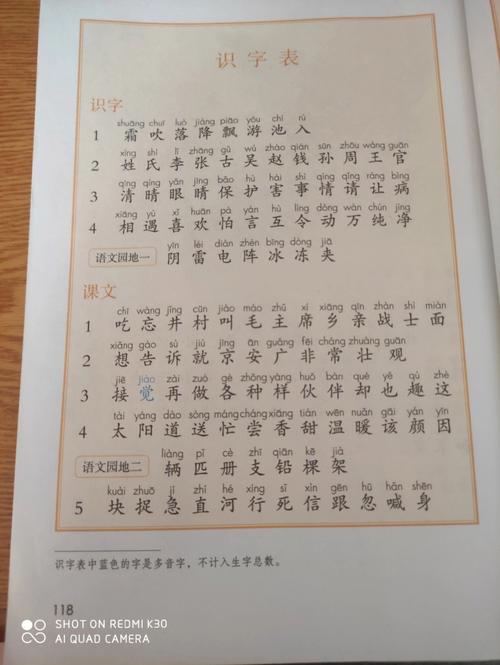 识字表
识字
shuāng chuī luò jiàng piāo yóu chí rù
1 霜 吹 落 降 飘 游 池 入
xìng shì lǐ zhāng gǔ wú zhào qián sūn zhōu wáng guān
2 姓 氏 李 张 古 吴 赵 钱 孙 周 王 官
qīng qíng yǎn jīng bǎo hù hài shì qíng qǐng ràng bìng
3 清 晴 眼 睛 保 护 害 事 情 请 让 病
xiāng yù xǐ huān pà yán hù lìng dòng wàn chún jìng
4 相 遇 喜 欢 怕 言 互 令 动 万 纯 净
yīn léi diàn zhèn bīng dòng jiā
语文园地一 阴 雷 电 阵 冰 冻 夹
课文
chī wàng jǐng cūn jiào máo zhǔ xí xiāng qīn zhàn shì miàn
1 吃 忘 井 村 叫 毛 主 席 乡 亲 战 士 面
xiǎng gào sù jiù jīng ān guǎng fēi cháng zhuàng guān
2 想 告 诉 就 京 安 广 非 常 壮 观
jiē jiào zài zuò gè zhǒng yàng huǒ bàn què yě qù zhè
3 接 觉 再 做 各 种 样 伙 伴 却 也 趣 这
tài yáng dào sòng máng cháng xiāng tián wēn nuǎn gāi yán yīn
4 太 阳 道 送 忙 尝 香 甜 温 暖 该 颜 因
liàng pǐ cè zhī qiān kē jià
语文园地二 辆 匹 册 支 铅 棵 架
kuài zhuō jí zhí hé xíng sǐ xìn gēn hū hǎn shēn
5 块 捉 急 直 河 行 死 信 跟 忽 喊 身
识字表中蓝色的字是多音字，不计入生字总数。
118
SHOT ON REDMI K30
AI QUAD CAMERA